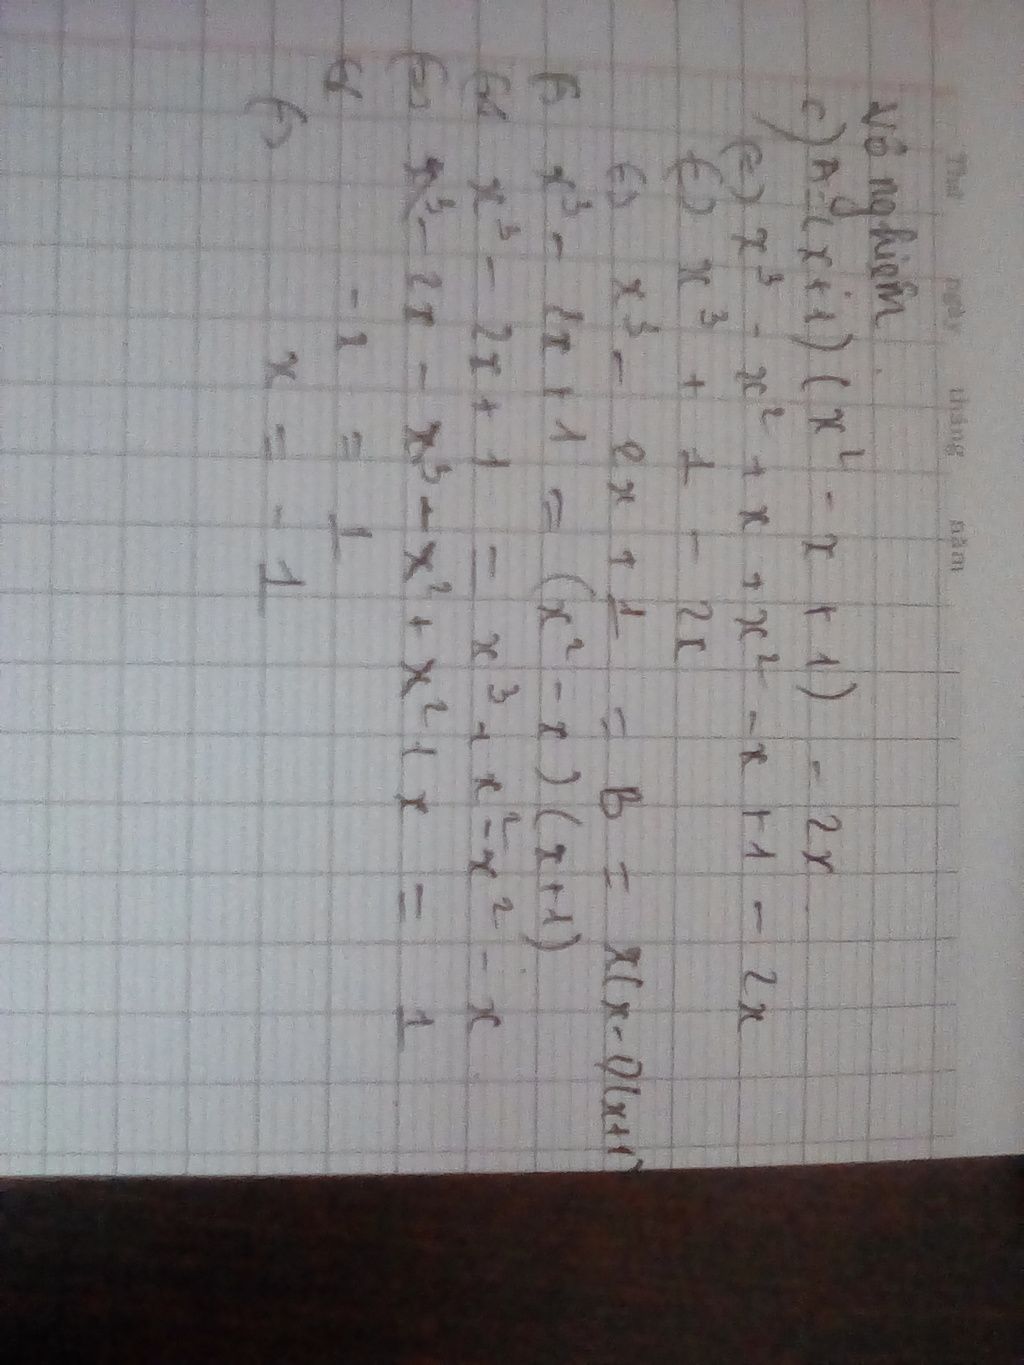 Thứ ngày tháng năm
Vô nghiệm
c) A = (x+1)(x² - x + 1) - 2x
(=) x³ - x² + x + x² - x + 1 - 2x
(=) x³ + 1 - 2x
(=) x³ - 2x + 1 = B = x(x-1)(x+1)
(=) x³ - 2x + 1 = (x² - x)(x+1)
(=) x³ - 2x + 1 = x³ + x² - x² - x
(=) x³ - 2x - x³ - x² + x² + x = 1
(=) - x = 1
(=) x = - 1